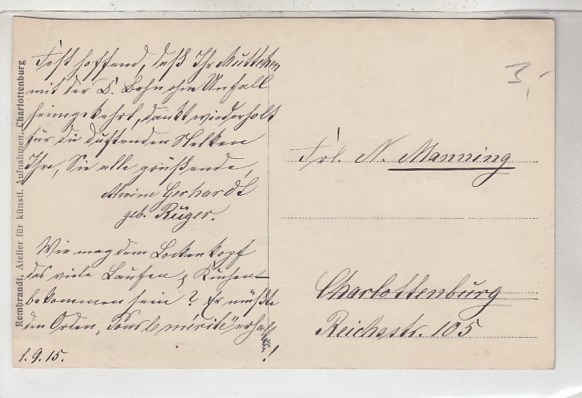 Fest hoffend, daß Ihr Muttchen
mit der E. Bahn ohne Unfall
heimgekehrt, dankt wiederholt
für die duftenden Nelken
Ihre, Sie alle grüßende,
Gerhardt
geb. Rüger.
Wie mag dem Lockenkopf
das viele Laufen
bekommen sein? Er müßte
den Orden "Pour le mérite" erhalten!
1.9.15.
Frl. N. Manning
Charlottenburg
Reichsstr. 105
3,-
Rembrandt, Atelier für künstl. Aufnahmen, Charlottenburg